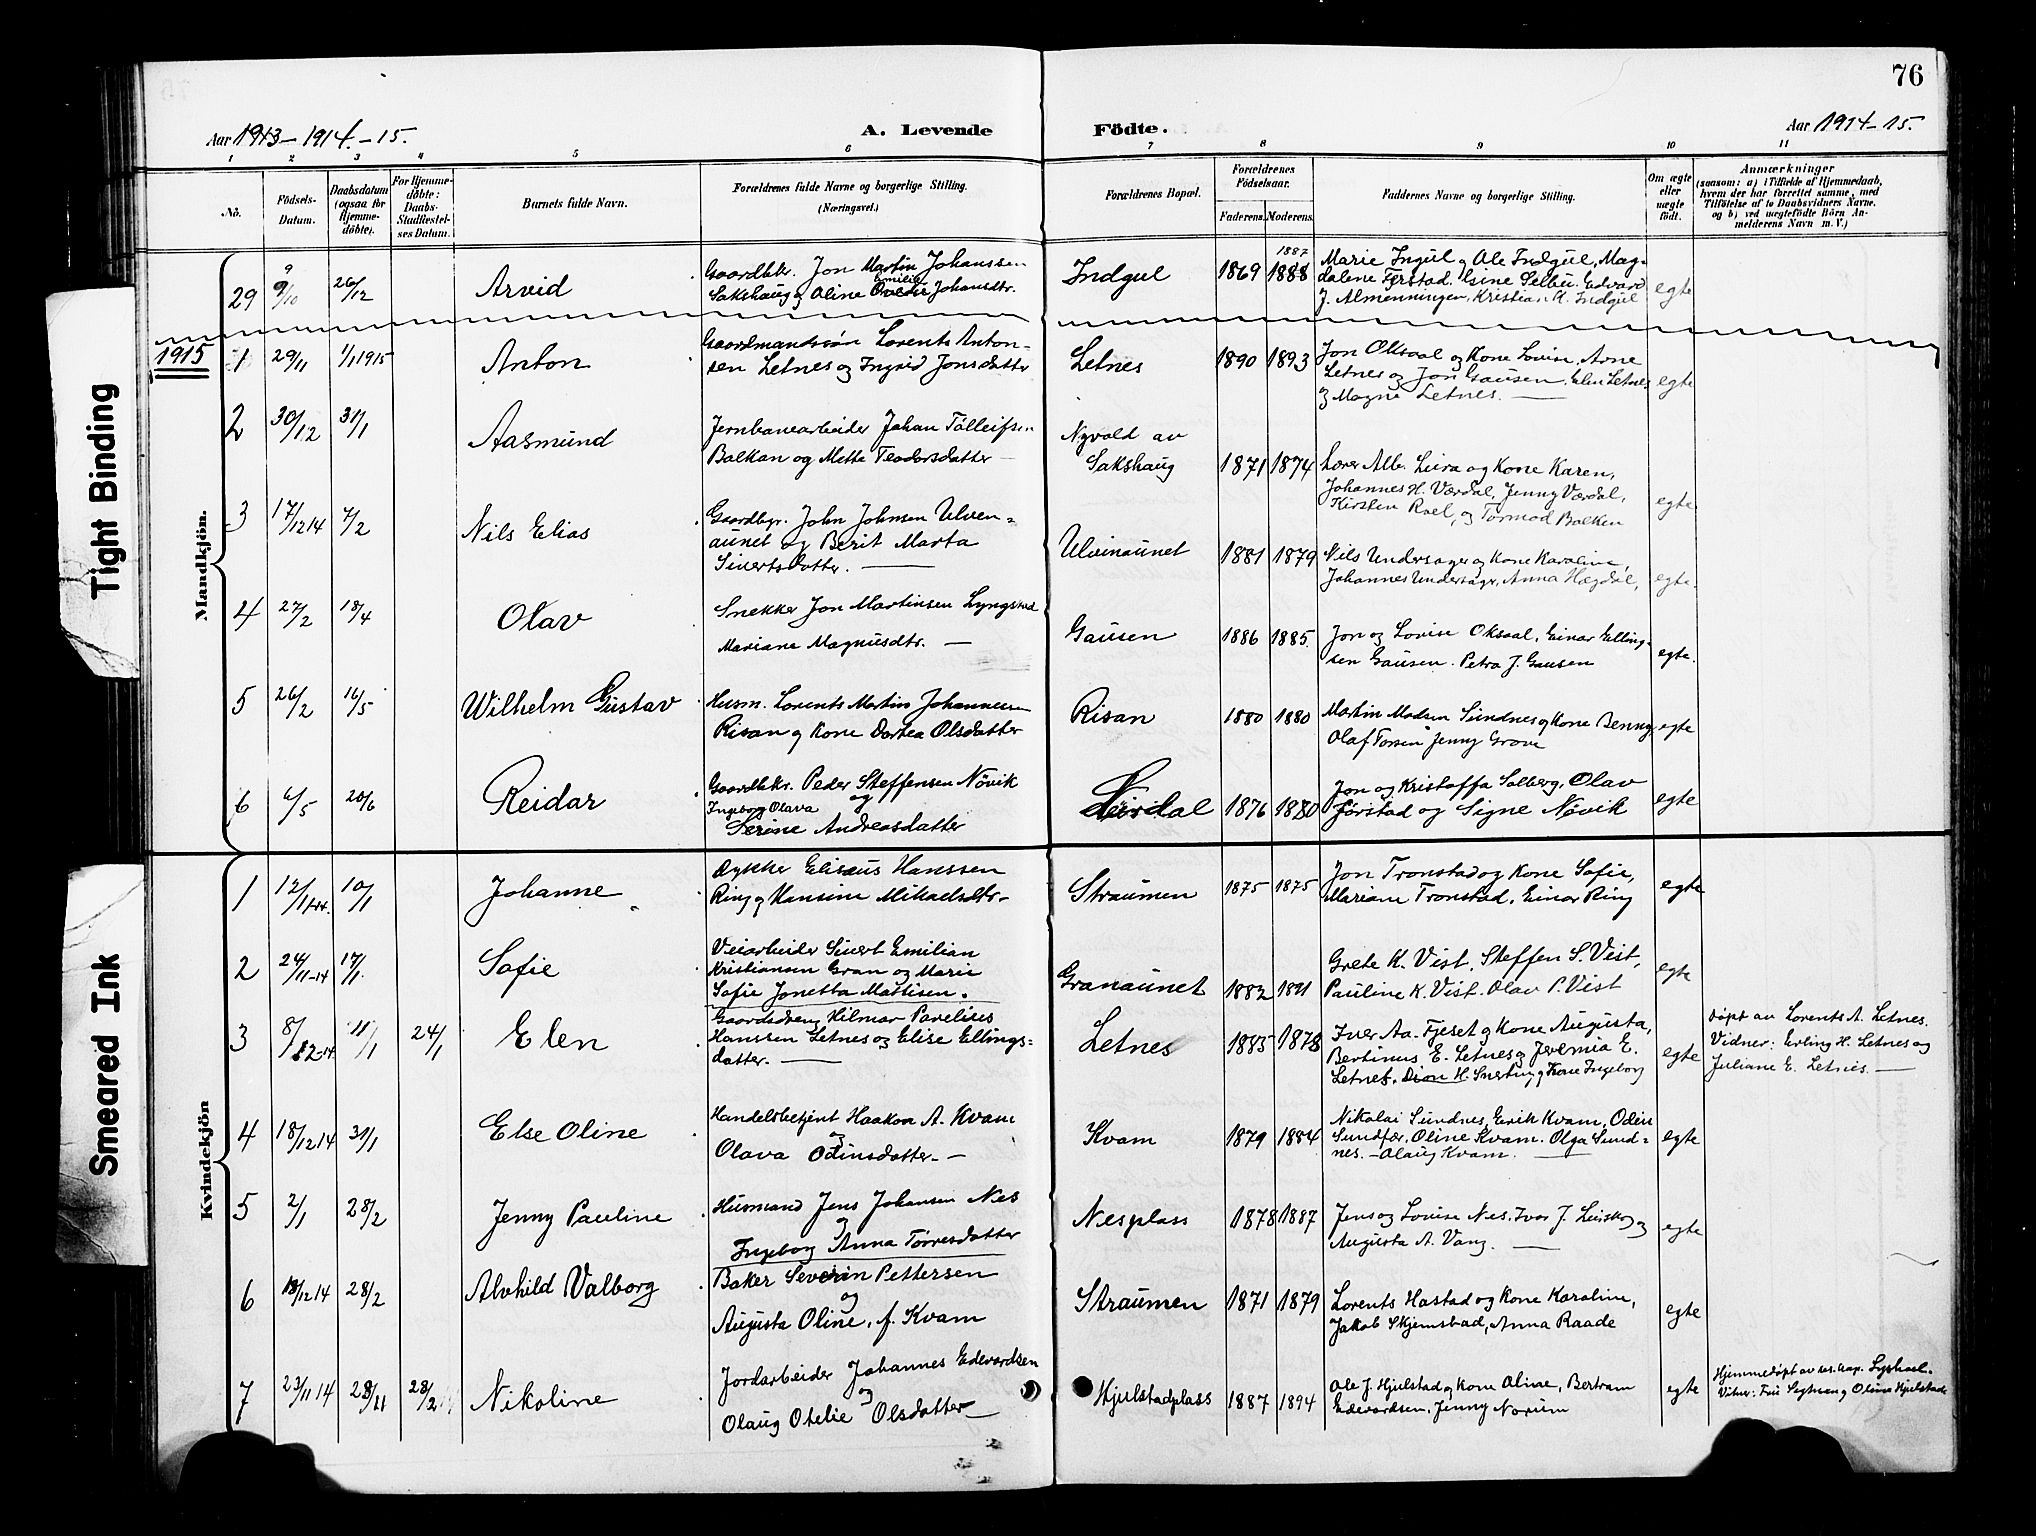 76
Aar 1913-1914.-15.
A. Levende Födte.
Aar 1914-15.
1 2 3 4 5 6 7 8 9 10 11
No.
Födsels-
Datum.
Daabsdatum
(ogsaa for
Hjemme-
döbte).
For Hjemme-
döbte:
Daabs-
Stadfæstel-
ses Datum.
Barnets fulde Navn.
Forældrenes fulde Navne og borgerlige Stilling.
(Næringsvei.)
Forældrenes Bopæl.
Forældrenes
Födselsaar.
Faderens. Moderens.
Faddernes Navne og borgerlige Stilling.
Om ægte
eller
uægte
født.
Anmærkninger
(saasom: a) i Tilfælde af Hjemmedaab,
hvem der har forrettet samme, med
Tilföielse af to Daabsvidners Navne.
og b) ved uægtefödte Börn An-
melderens Navn m. V.)
Mandkjön.
29 9/10 26/12 Arvid
Gaardbkr. Jon Martin Johanssen
Sakshaug og Aline Emilie Johansdtr.
Indgul 1869 1887
Marie Ingul og Ole Indgul, Mag-
dalene Fjerstad. Gine Selbu. Edvard
J. Almenningen. Kristian A. Indgul
egte
1915
1 29/11 1/1 1915 Anton
Gaardmandssøn Lorents Anton-
sen Letnes og Ingrid Jonsdatter
Letnes 1890 1893
Jon Oksaal og Kone Lovise, Arne
Letnes og Jon Gausen. Elen Letnes
og Magne Letnes. —
egte
2 30/12 31/1 Aasmund
Jernbanearbeider Johan Tolleifsen
Balkan og Mette Teodorsdatter —
Nyvold av
Sakshaug 1871 1874
Lærer Alb. Lura og Kone Karen,
Johannes H. Værdal, Jenny Værdal,
Kirsten Roel, og Tormod Balken
egte
3 17/12 14 7/2 Nils Elias
Gaardbgr. John Johnsen Ulven-
aunet og Berit Marta
Sivertsdatter. —
Ulvinaunet 1881 1879
Nils Undersager og Kone Karoline,
Johannes Undersager, Anna Hegdal,
egte.
4 27/2 18/4 Olav
Snekker Jon Martinsen Lyngstad
Mariane Magnusdtr. —
Gausen 1886 1885.
Jon og Lovise Oksaal, Einar Elling-
sen Gausen. Petra J. Gausen
egte.
5 26/2 16/5 Wilhelm Gustav
Husm. Lorents Martin Johannessen
Risan og Kone Dortea Olsdatter
Risan 1880 1880
Martin Madsen Sundnes og Kone Benny
Olaf Torsen Jenny Grove
egte
6 6/5 20/6 Reidar
Gaardbkr. Peder Steffensen Nøvik
og
Ingeborg Olava
Serine Andreasdatter
1876 1880
Jon og Kristoffa Salberg, Olav
Jørstad og Signe Nøvik
egte
Kvindekjön
1 10/1 Johanne
Dykker Elisæus Hanssen
Ring og Hansine Mikaelsdtr.
Straumen 1875 1875
Jon Tronstad og Kone Sofie,
Mariane Tronstad, Einar Ring
egte
2 24/11-14 17/1. Sofie
Veiarbeider Sivert Emilian
Kristiansen Gran og Marie
Sofie Jonetta Mattisen.
Granaunet 1882 1891
Grete K. Vist, Steffen S. Vist,
Pauline K. Vist. Olav P. Vist
egte
3 8/12-14 11/1 24/1 Elen
Gaardsdreng Hilmar Pavelius
Hanssen Letnes og Elise Ellings-
datter. —
Letnes 1885 1878
Iver Aa. Fjeset og Kone Augusta,
Bertinus E. Letnes og Jeremia E.
Letnes, H. Snerting og Kone Ingeborg
egte
Døpt av Lorents A. Letnes.
Vidner: Erling H. Letnes og
Juliane E. Letnes. —
4 18/12 14 31/1 Else Oline
Handelsbetjent Haakon A. Kvam
og
Olava Odinsdatter. —
Kvam 1879 1884
Nikolai Sundnes, Erik Kvam, Odin
Sundfær, Oline Kvam. Olga Sund-
nes. — Olaug Kvam. —
egte
5 2/1 28/2 Jenny Pauline
Husmand Jens Johansen Nes
og
Ingeborg Anna Tørresdatter
Nesplass 1878 1887
Jens og Lovise Nes. Ivar J. og
Augusta A. Vang. —
egte
6 18/12 14 28/2 Alvhild Valborg
Baker Severin Pettersen
og
Augusta Oline, f. Kvam
Straumen 1871 1879
Lorents Hastad og Kone Karoline,
Jakob Skjemstad, Anna Raade
egte
7 23/11 14 28/11 28/2 Nikoline
Jordarbeider Johannes Edevardsen
og
Olaug Otelie Olsdatter —
Hjulstadplass 1887 1894
Ole J. Hjulstad og Kone Oline, Bertram
Edevardsen, Jenny Norum
egte
Hjemmedøpt av res. kap.
Vitner: Fru og Oline Hjulstad
Tight Binding
Smeared Ink